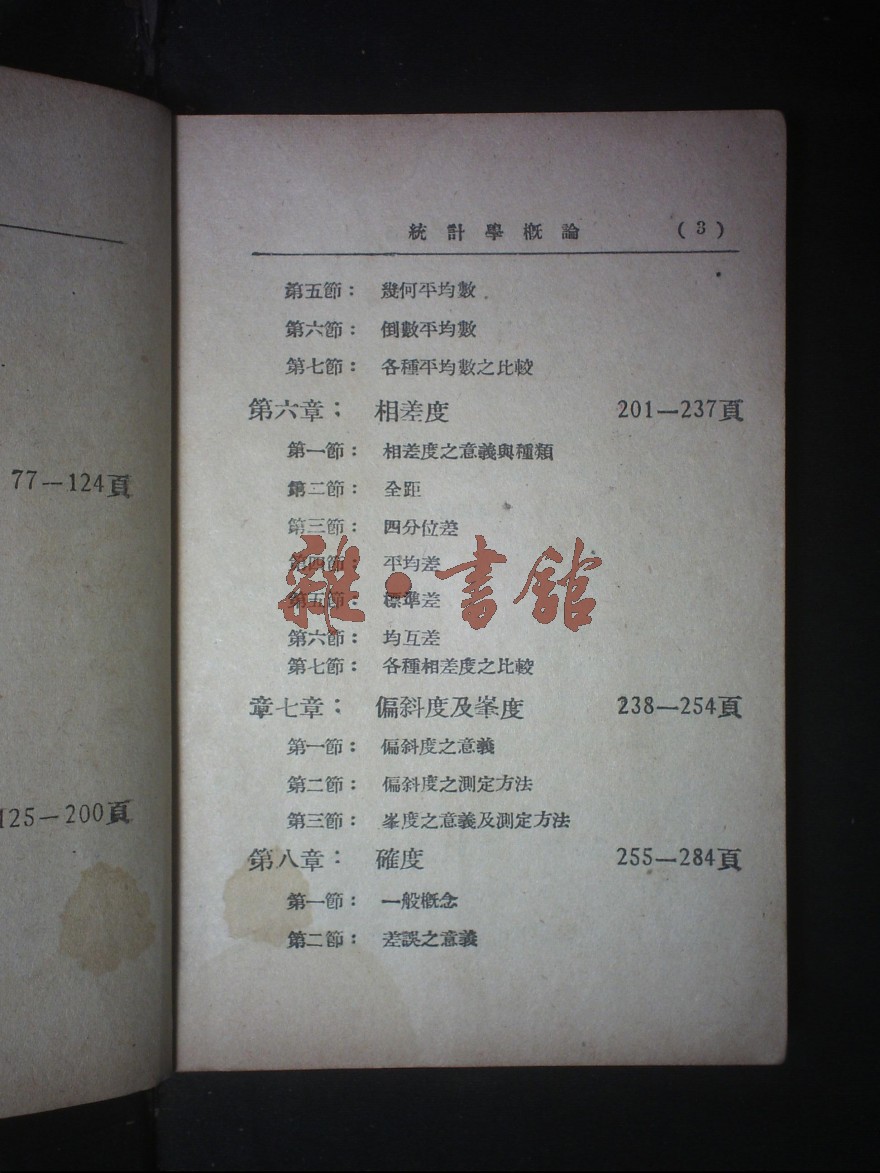 77—124頁
125—200頁
統計學概論 (3)
第五節： 幾何平均數
第六節： 倒數平均數
第七節： 各種平均數之比較
第六章； 相差度 201—237頁
第一節： 相差度之意義與種類
第二節： 全距
第三節： 四分位差
第四節： 平均差
第五節： 標準差
雜·書館
第六節： 均互差
第七節： 各種相差度之比較
章七章： 偏斜度及峯度 238—254頁
第一節： 偏斜度之意義
第二節： 偏斜度之測定方法
第三節： 峯度之意義及測定方法
第八章： 確度 255—284頁
第一節： 一般概念
第二節： 差誤之意義